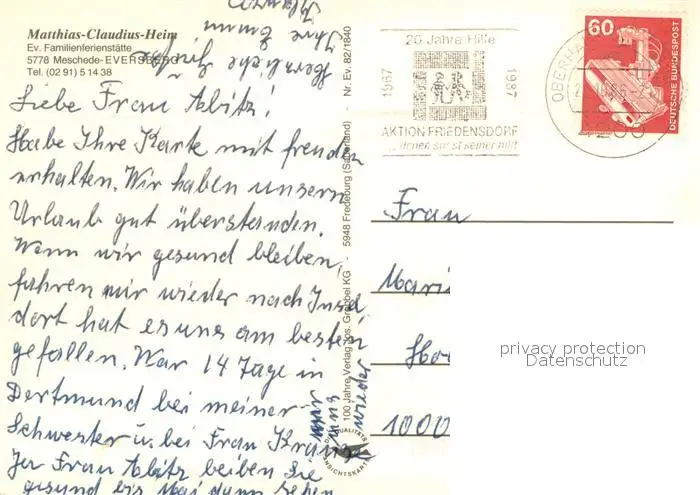 Matthias-Claudius-Heim
Ev. Familienferienstätte
5778 Meschede-EVERSBERG
Tel. (02 91) 5 14 38
Liebe Frau Abitz!
Habe Ihre Karte mit freuden
erhalten. Wir haben unsern
Urlaub gut überstanden.
Wenn wir gesund bleiben,
fahren wir wieder nach Insel
dort hat es uns am besten
gefallen. War 14 Tage in
Dortmund bei meiner
Schwester u. bei Frau Krause
Frau Abitz beiben Sie
gesund bis Mai dann sehen
wir
uns
wieder
Herzliche Grüße
Ihre Emma
Nr. Ev. 82/1840
100 Jahre Verlag Jos. Grobbel KG - 5948 Fredeburg (Sauerland)
QUALITÄTS
ANSICHTSKARTE
20 Jahre Hilfe
1967
1987
AKTION FRIEDENSDORF
60
DEUTSCHE BUNDESPOST
Frau
Mari
Ho
1000
privacy protection
Datenschutz